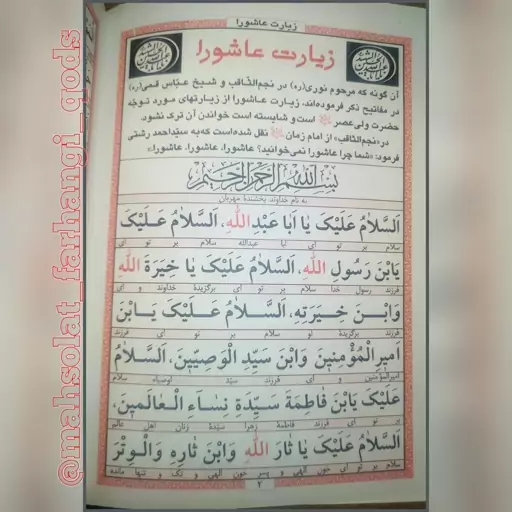 زیارت عاشورا
زیارت عاشورا
آن گونه که مرحوم نوری(ره) در نجم‌الثّاقب و شیخ عبّاس قمی(ره)
در مفاتیح ذکر فرموده‌اند، زیارت عاشورا از زیارتهای مورد توجّه
حضرت ولی‌عصر است و شایسته است خواندن آن ترک نشود.
در «نجم‌الثاقب» از امام زمان نقل شده‌است که به سیّداحمد رشتی
فرمود: «شما چرا عاشورا نمی‌خوانید؟ عاشورا، عاشورا، عاشورا.»
بسم الله الرحمن الرحیم
به نام خداوند بخشندهٔ مهربان
اَلسَّلامُ عَلَیْکَ یا اَبا عَبْدِ اللهِ، اَلسَّلامُ عَلَیْکَ
سلام بر تو ای ابا عبدالله سلام بر تو ای
یَابْنَ رَسُولِ اللهِ، اَلسَّلامُ عَلَیْکَ یا خِیَرَةَ اللهِ
فرزند رسول خدا سلام بر تو ای برگزیدهٔ خداوند و ای
وَابْنَ خِیَرَتِهِ، اَلسَّلامُ عَلَیْکَ یَابْنَ
فرزند برگزیدهٔ او سلام بر تو ای فرزند
اَمیرِالْمُؤْمِنینَ وَابْنَ سَیِّدِ الْوَصِیّینَ، اَلسَّلامُ
امیرالمؤمنین و ای فرزند سیّد اوصیاء سلام
عَلَیْکَ یَابْنَ فاطِمَةَ سَیِّدَةِ نِساءِ الْعالَمینَ،
بر تو ای فرزند فاطمهٔ زهرا سیّدهٔ زنان اهل عالم
اَلسَّلامُ عَلَیْکَ یا ثارَ اللهِ وَابْنَ ثارِهِ وَالْوِتْرَ
سلام بر تو ای خون الهی و پسر خون الهی و تک و تنها مانده
۲
@mahsolat_farhangi_qods